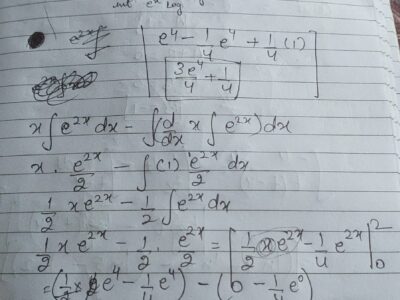 e⁴ - 1/4 e⁴ + 1/4 (1)
3e⁴/4 + 1/4
x ∫ e^{2x} dx - ∫(d/dx x ∫ e^{2x}) dx
x · e^{2x}/2 - ∫ (1) e^{2x}/2 dx
1/2 x e^{2x} - 1/2 ∫ e^{2x} dx
1/2 x e^{2x} - 1/2 · e^{2x}/2 = [1/2 x e^{2x} - 1/4 e^{2x}]₀²
= (1/2 × 2 e⁴ - 1/4 e⁴) - (0 - 1/4 e⁰)